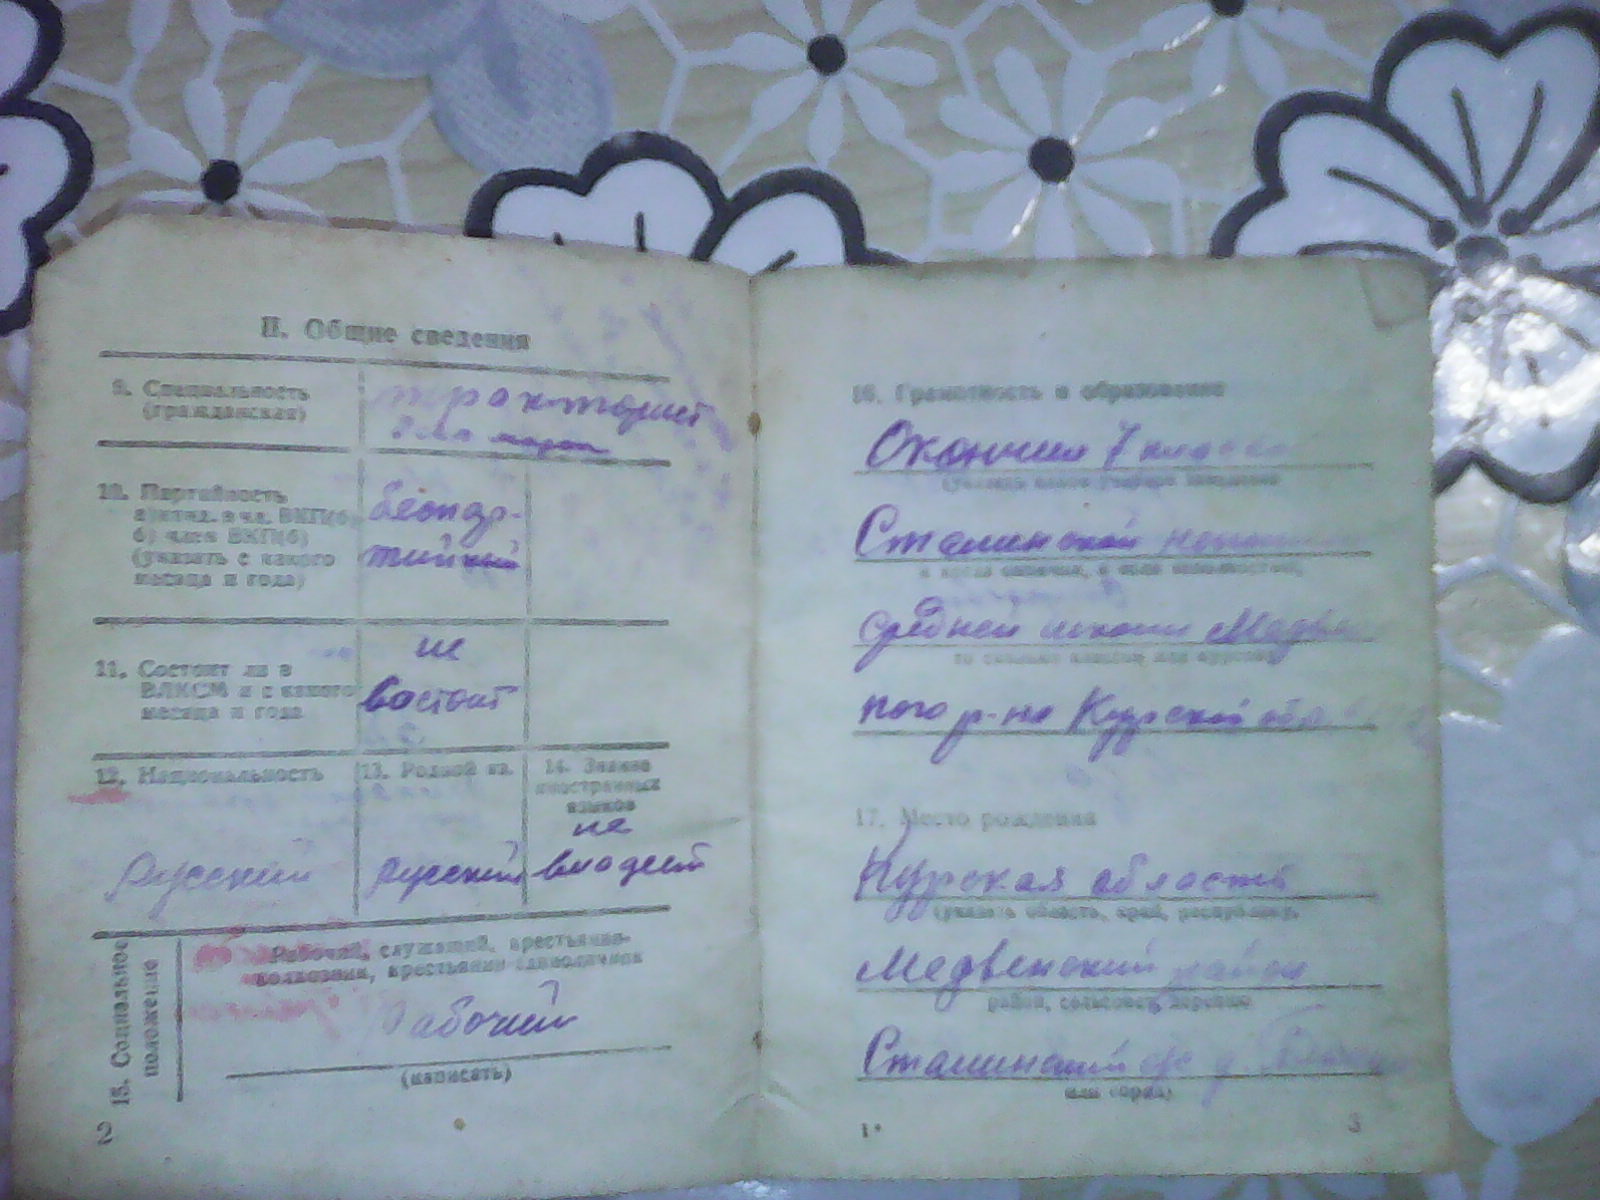 II. Общие сведения
9. Специальность
(гражданская)
тракторист
10. Партийность
а) канд. в чл. ВКП(б)
б) член ВКП(б)
(указать с какого
месяца и года)
беспар-
тийный
11. Состоит ли в
ВЛКСМ и с какого
месяца и года
не
состоит
12. Национальность
русский
13. Родной яз.
русский
14. Знание
иностранных
языков
не
владеет
15. Социальное
положение
Рабочий, служащий, крестьянин-
колхозник, крестьянин-единоличник
Рабочий
(написать)
2
16. Грамотность и образование
Окончил 7 классов
Сталинской
средней школы Медвен
кого р-на Курской обл
17. Место рождения
Курская область
(указать область, край, республику,
Медвенский район
район, сельсовет, деревню
Сталинский с/с
или город)
1*
3